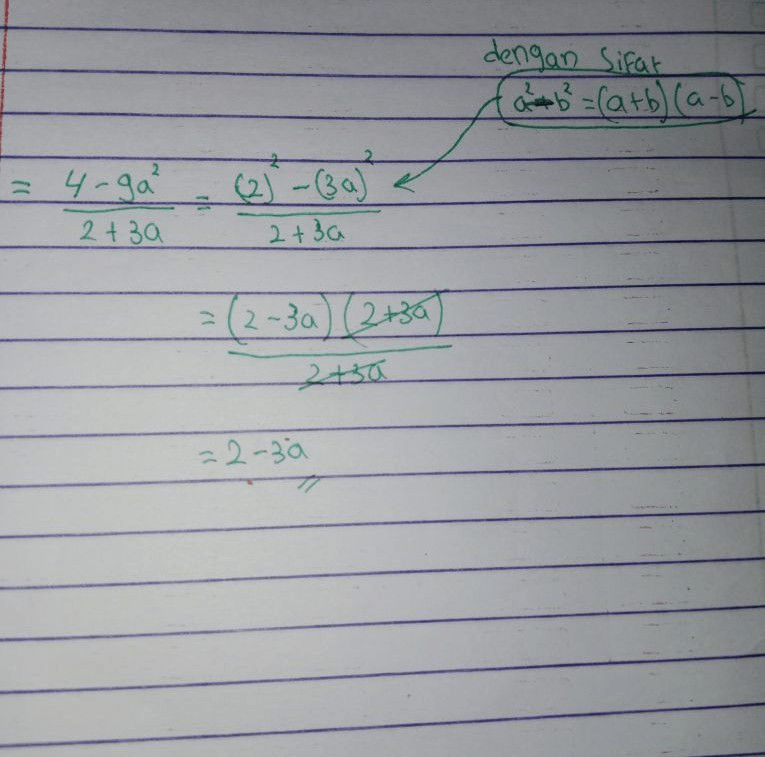 dengan Sifat
a² - b² = (a+b) (a-b)
= 4 - 9a² / 2 + 3a = (2)² - (3a)² / 2 + 3a
= (2 - 3a) (2+3a) / 2+3a
= 2 - 3a